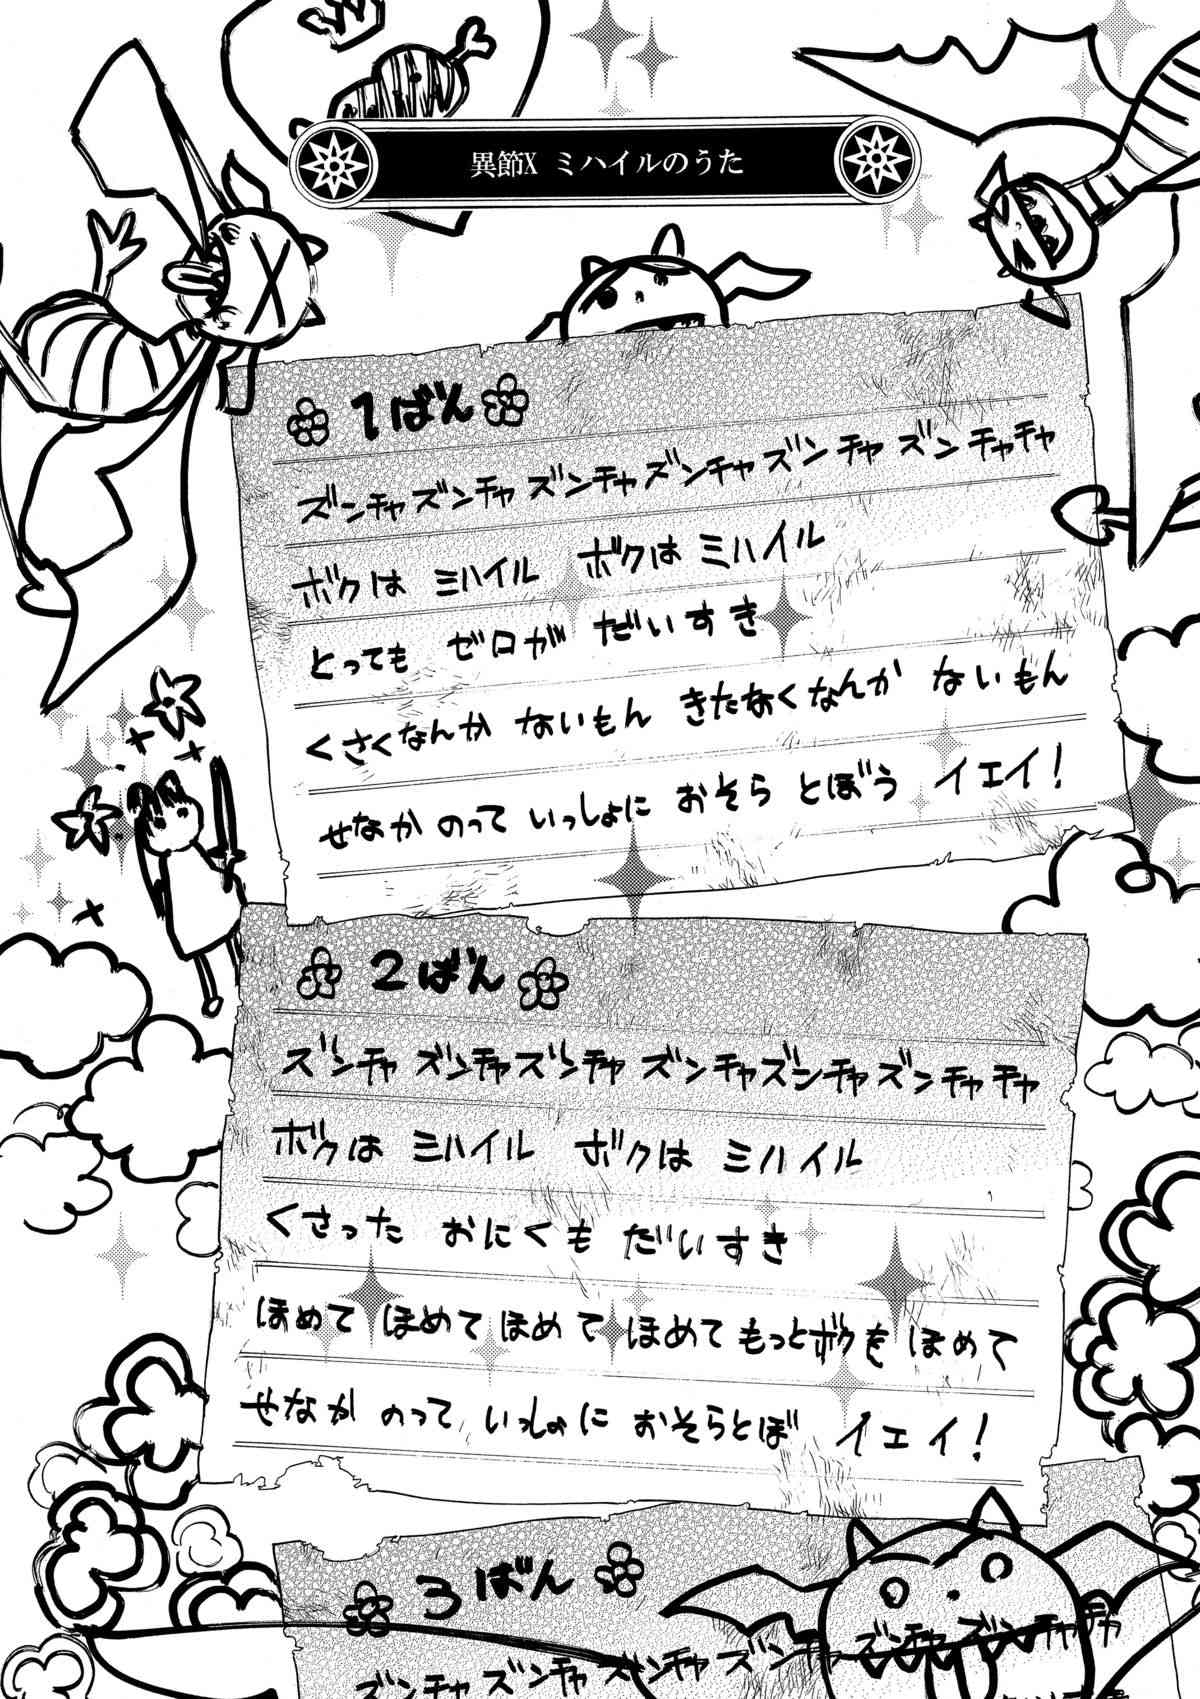 異節X ミハイルのうた
1ばん
ズンチャズンチャ ズンチャズンチャズンチャ ズンチャチャ
ボクは ミハイル ボクは ミハイル
とっても ゼロが だいすき
くさくなんか ないもん きたなくなんか ないもん
せなか のって いっしょに おそら とぼう イエイ!
2ばん
ズンチャ ズンチャズンチャ ズンチャズンチャズンチャチャ
ボクは ミハイル ボクは ミハイル
くさった おにくも だいすき
ほめて ほめて ほめて ほめて もっとボクを ほめて
せなか のって いっしょに おそらとぼ イエイ!
3ばん
ズンチャズンチャズンチャ ズンチャ ズンチャ ズンチャチャ